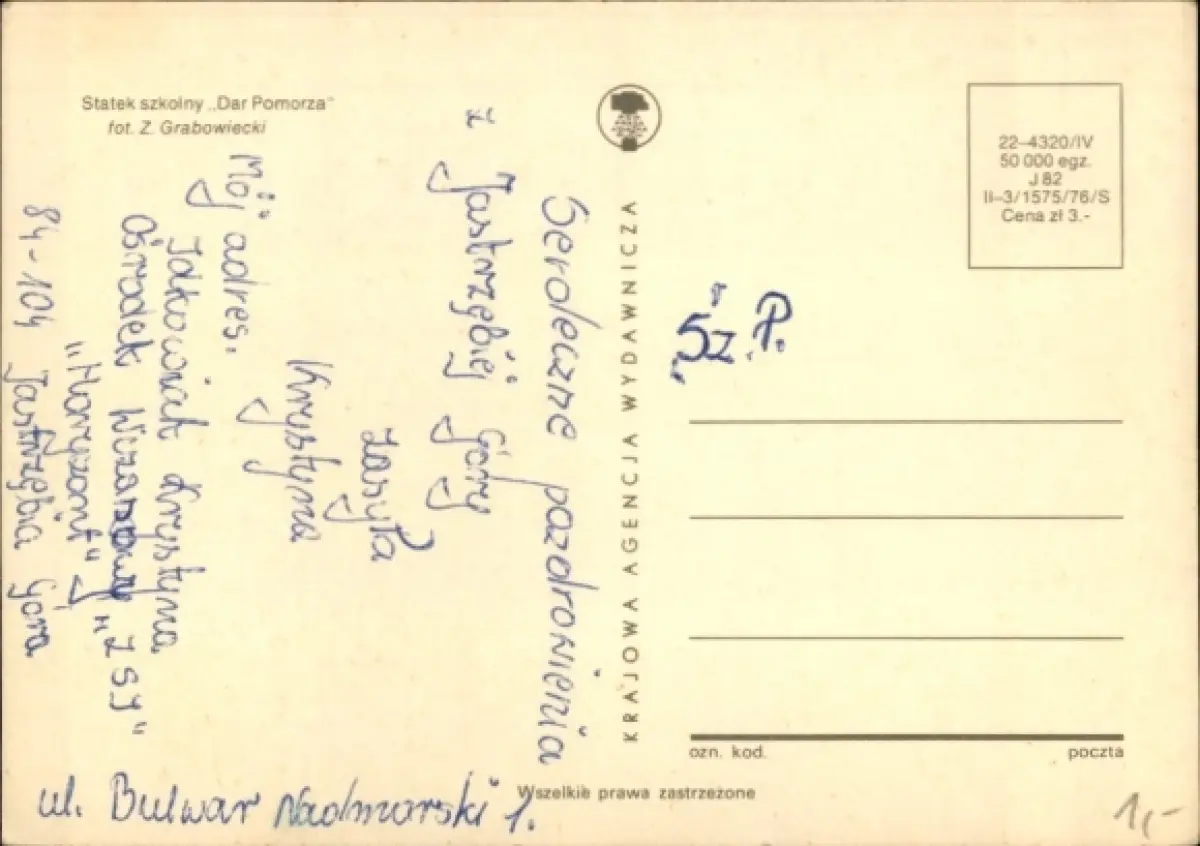 Statek szkolny „Dar Pomorza"
fot. Z. Grabowiecki
22-4320/IV
50 000 egz.
J 82
II-3/1575/76/S
Cena zł 3.-
KRAJOWA AGENCJA WYDAWNICZA
Serdeczne pozdrowienia
z Jastrzębiej Góry
zasyła
Krystyna
Mój adres.
Krystyna
Ośrodek Wczasowy „ZSJ"
„Horyzont"
84-104 Jastrzębia Góra
ul. Bulwar Nadmorski 1.
Sz. P.
ozn. kod.
poczta
Wszelkie prawa zastrzeżone
1,-